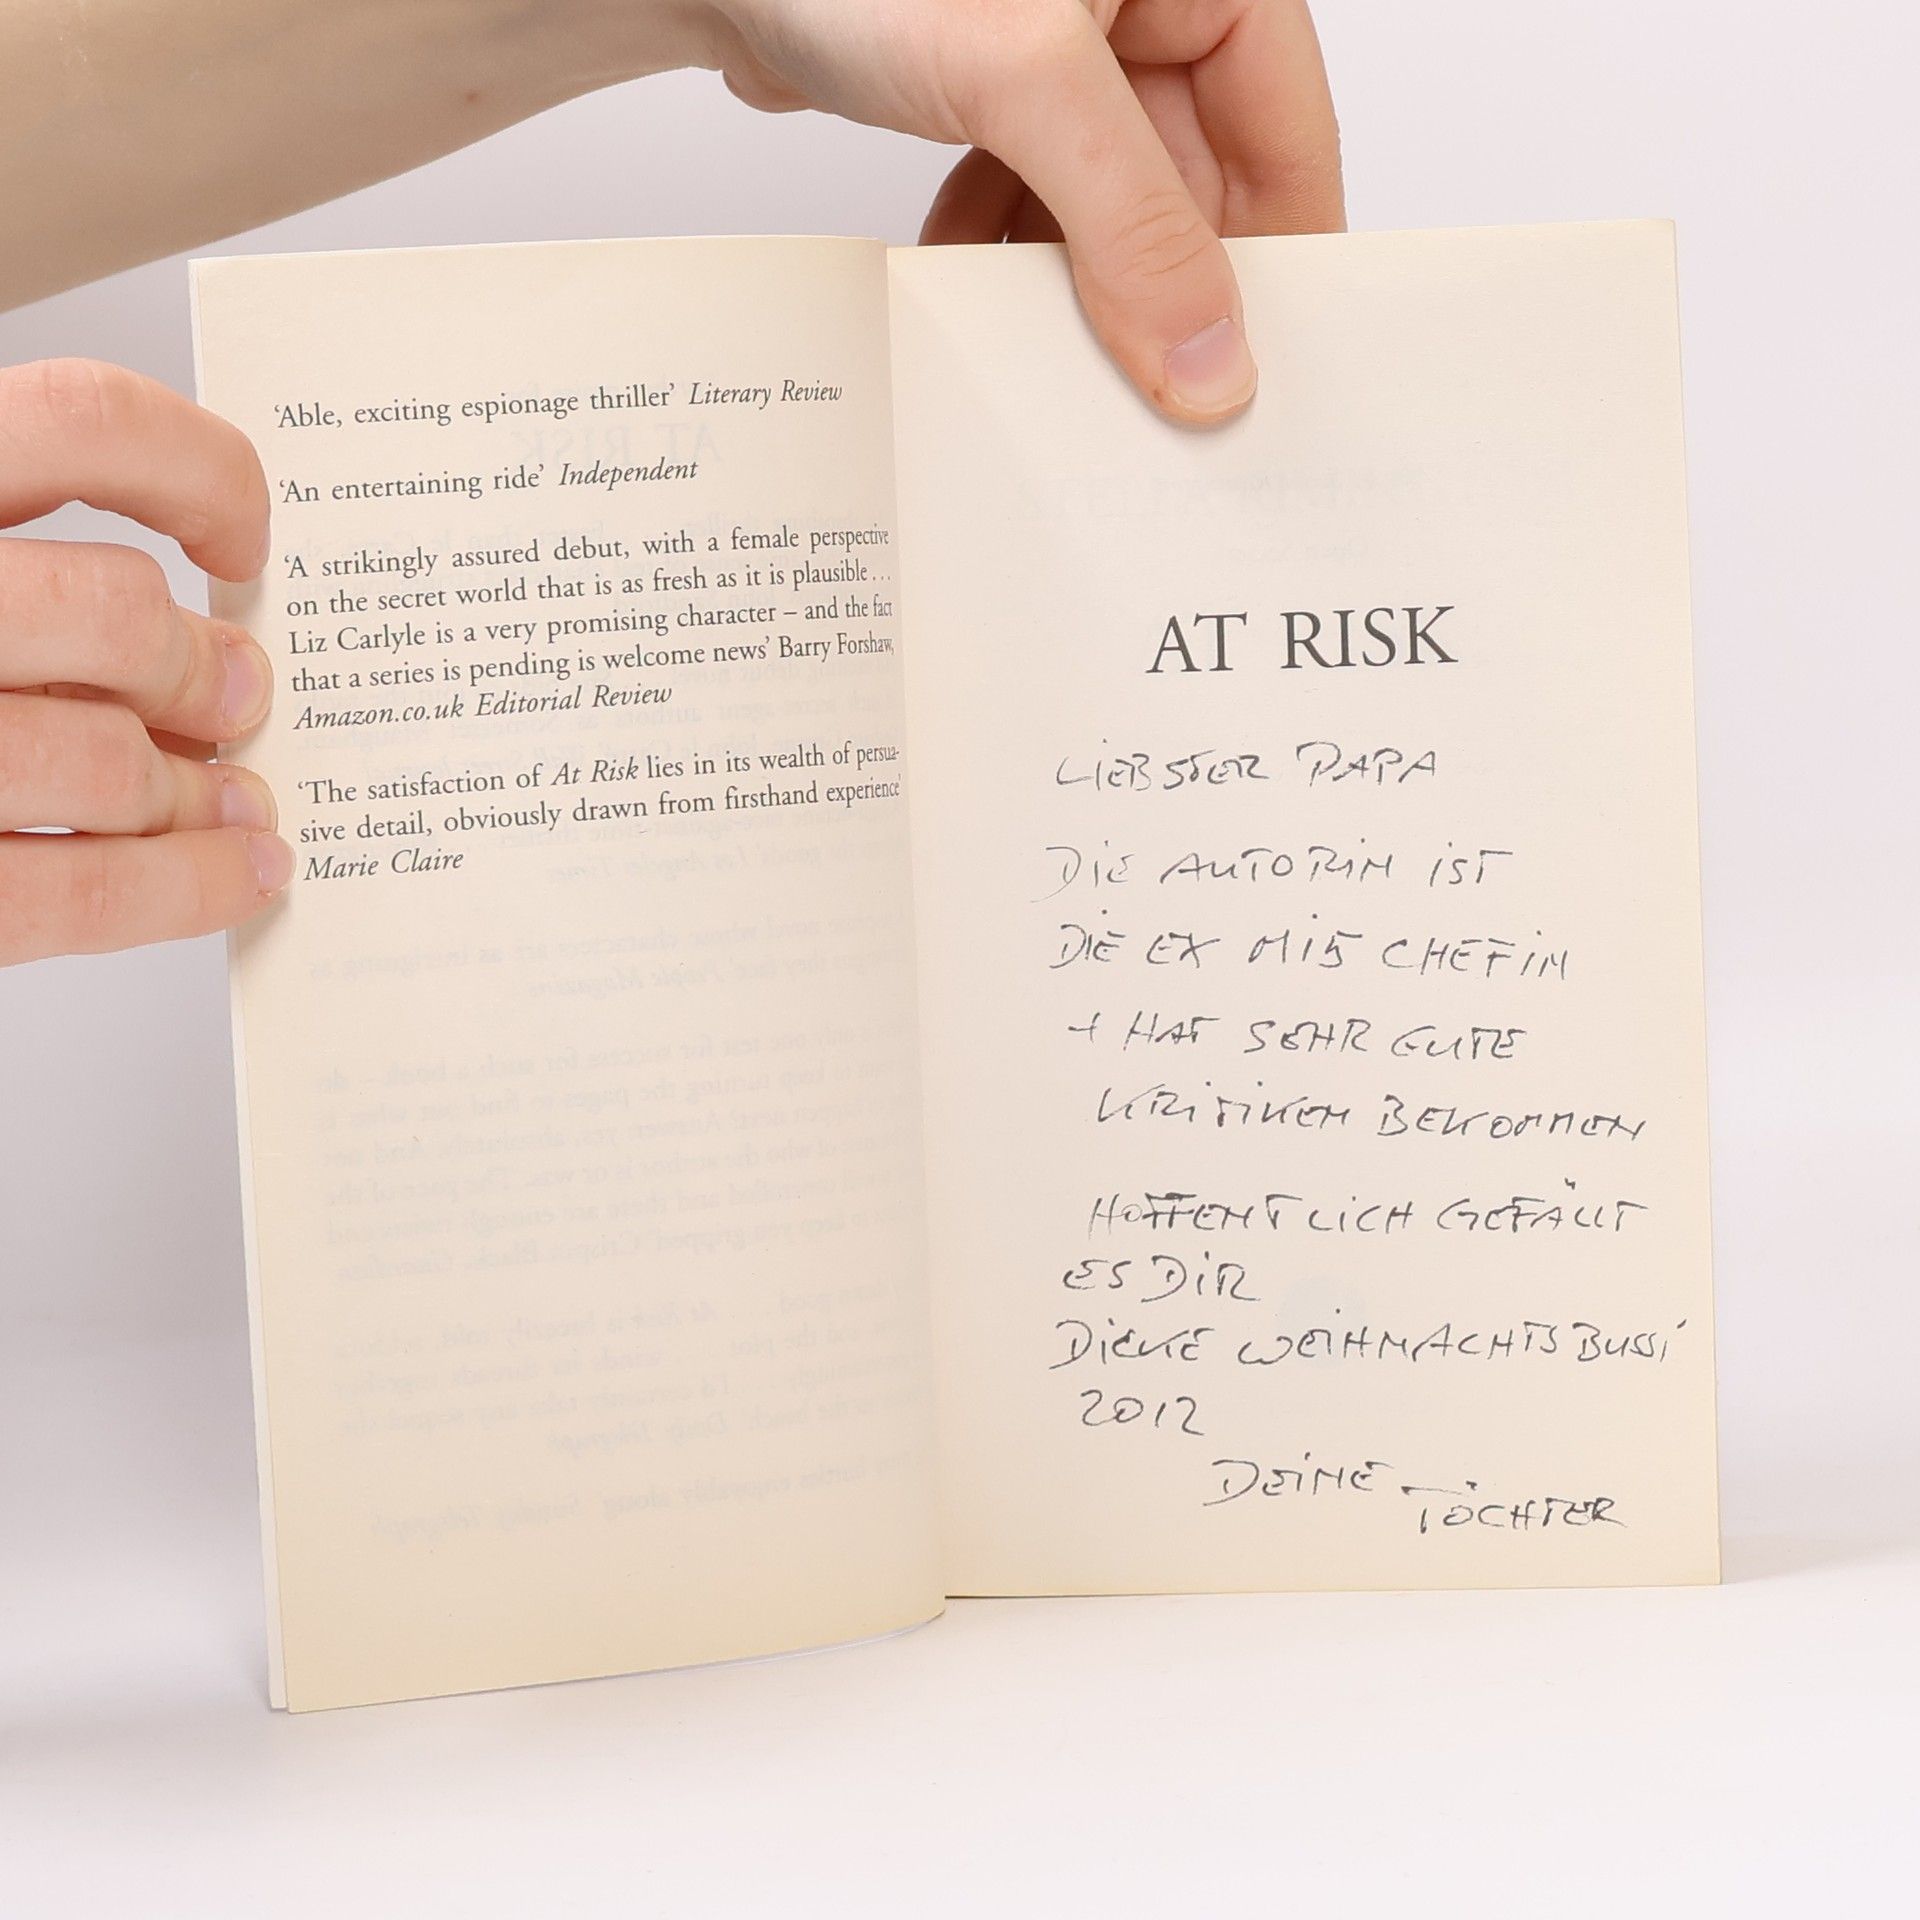 ‘Able, exciting espionage thriller’ Literary Review
‘An entertaining ride’ Independent
‘A strikingly assured debut, with a female perspective
on the secret world that is as fresh as it is plausible…
Liz Carlyle is a very promising character – and the fact
that a series is pending is welcome news’ Barry Forshaw,
Amazon.co.uk Editorial Review
‘The satisfaction of At Risk lies in its wealth of persua-
sive detail, obviously drawn from firsthand experience’
Marie Claire
AT RISK
LIEBSTER PAPA
DIE AUTORIN IST
DIE EX MI5 CHEFIN
+ HAT SEHR GUTE
KRITIKEN BEKOMMEN
HOFFENTLICH GEFÄLLT
ES DIR
DICKE WEIHNACHTSBUSSI
2012
DEINE TÖCHTER